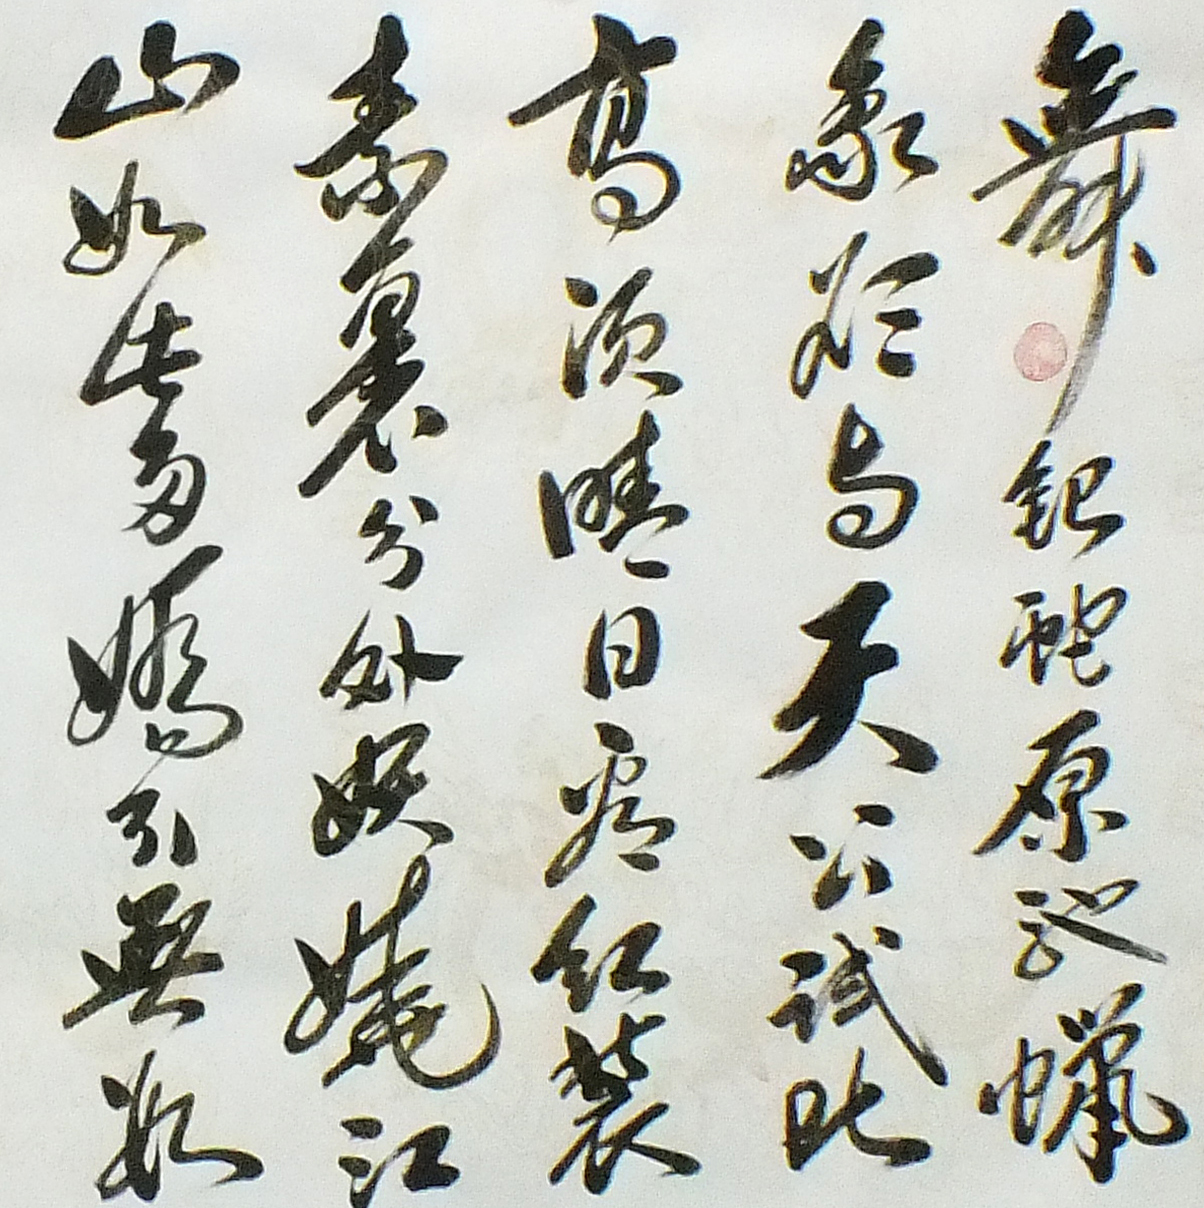 舞銀蛇原馳蠟
象欲与天公試比
高須晴日看紅裝
素裹分外妖嬈江
山如此多嬌引無數